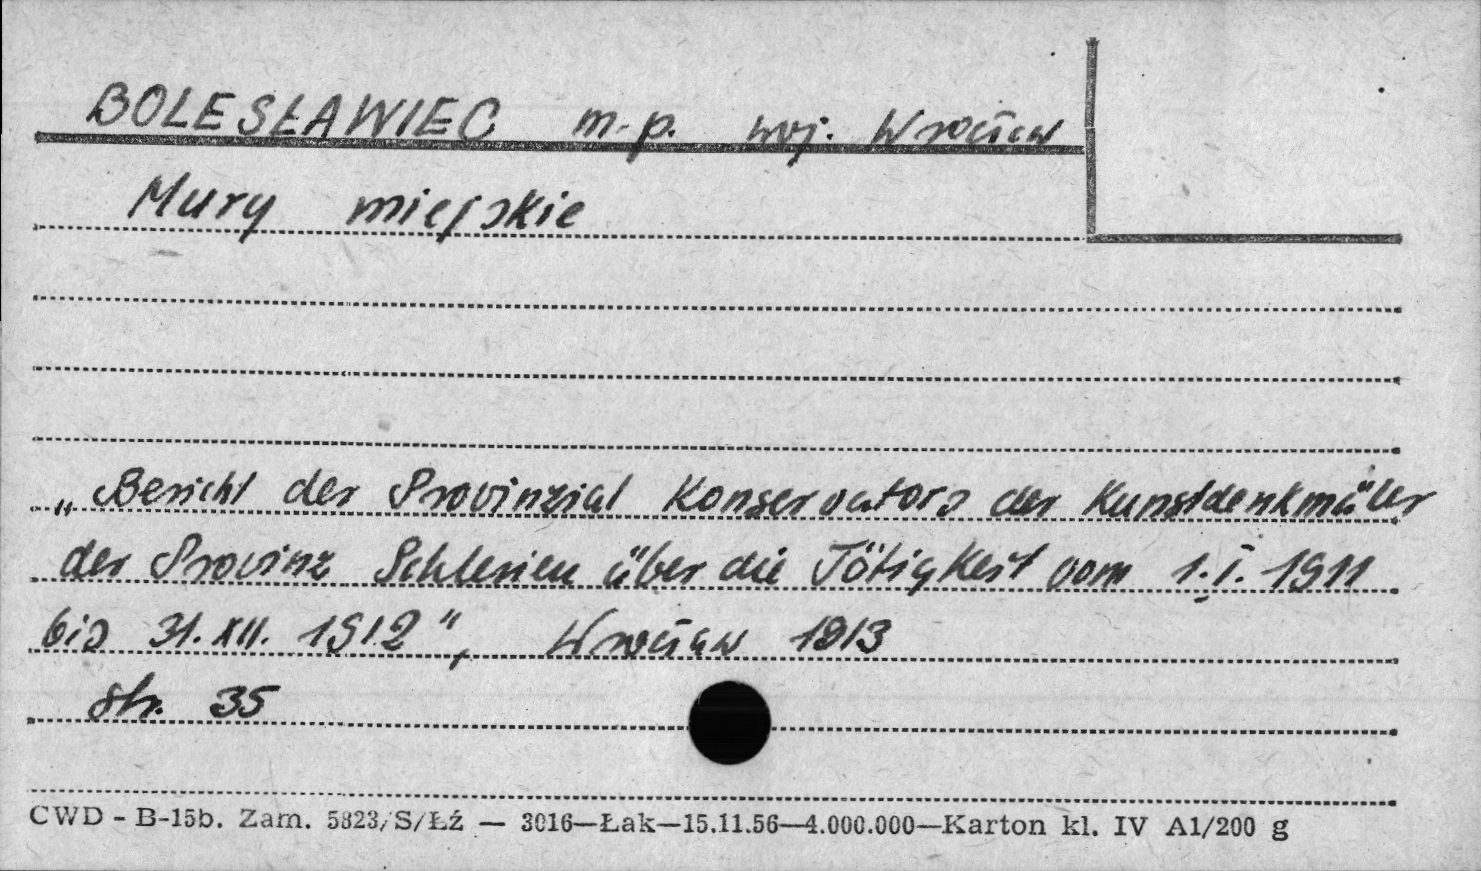 BOLESŁAWIEC m-p. woj. Wrocław
Mury miejskie
„Bericht der Provinzial Konservators der Kunstdenkmäler
der Provinz Schlesien über die Tötigkeit vom 1.I. 1911
bis 31.XII. 1912", Wrocław 1913
str. 35
CWD - B-15b. Zam. 5823/S/Łź — 3016—Łak—15.11.56—4.000.000—Karton kl. IV A1/200 g